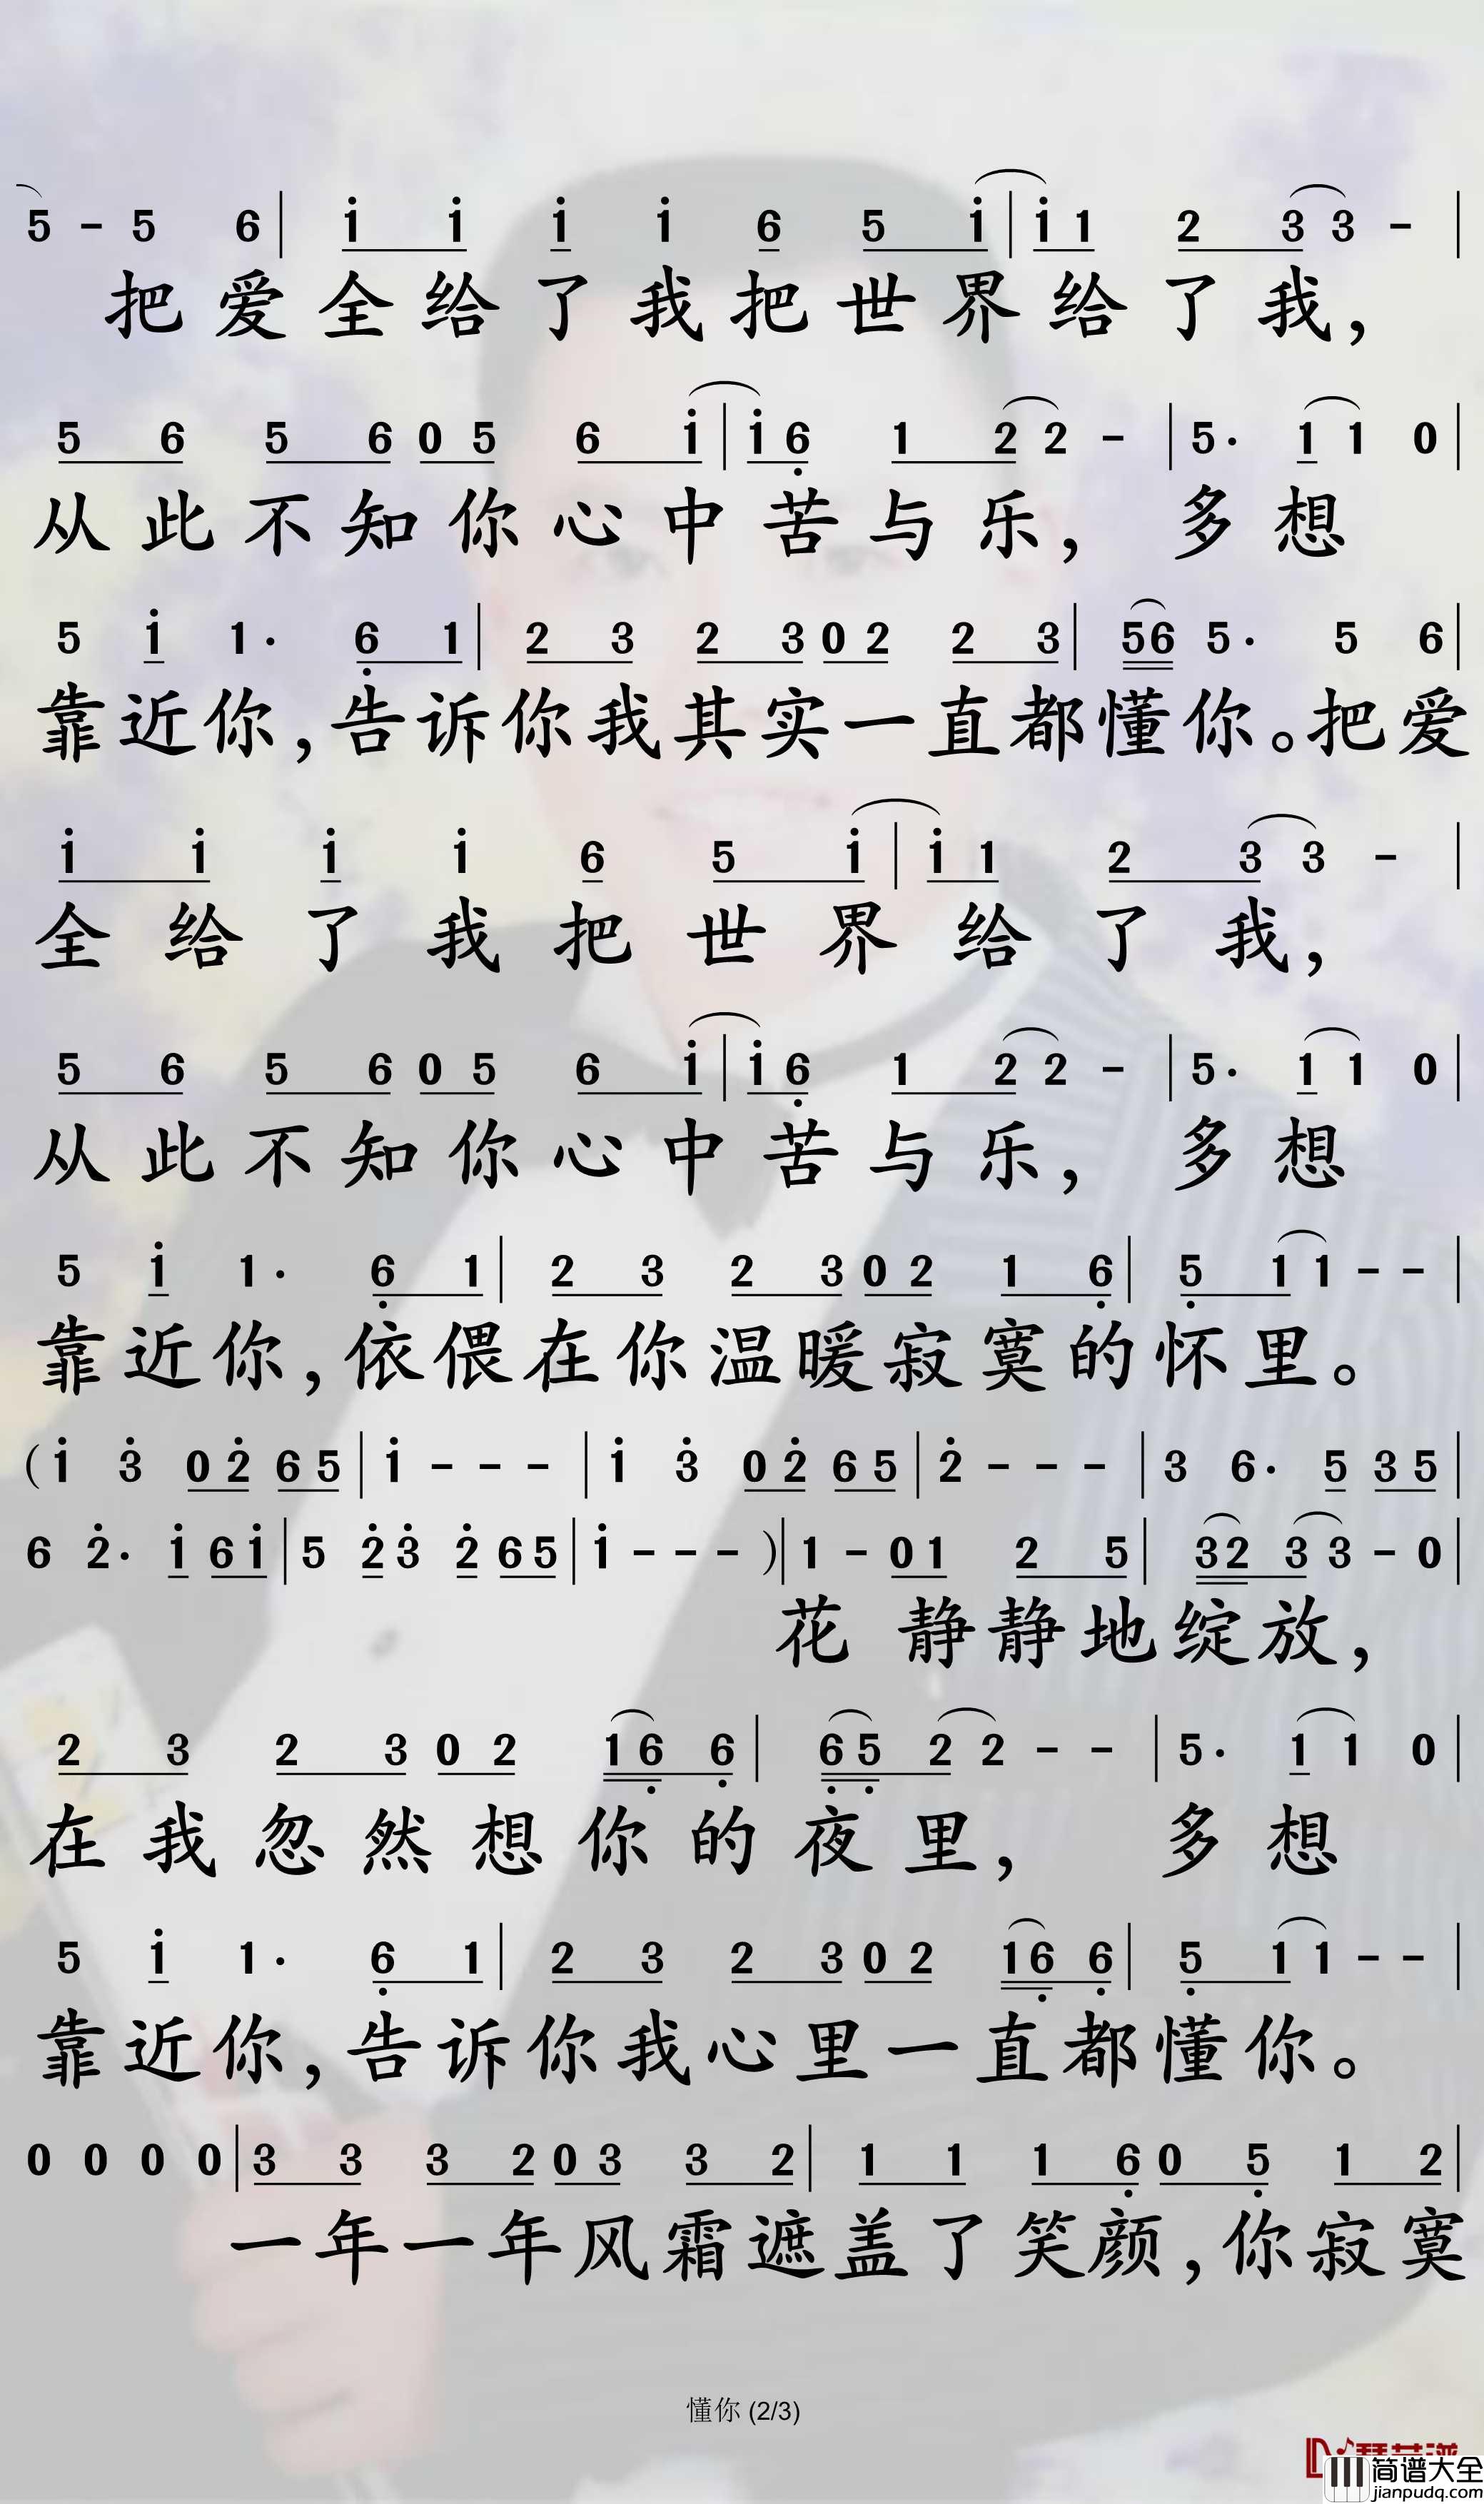 5 - 5 6 | i i i i 6 5 i | i 1 2 3 3 - |
把爱全给了我把世界给了我，
5 6 5 6 0 5 6 i | i 6 1 2 2 - | 5. 1 1 0 |
从此不知你心中苦与乐，多想
5 i 1. 6 1 | 2 3 2 3 0 2 2 3 | 56 5. 5 6 |
靠近你，告诉你我其实一直都懂你。把爱
i i i i 6 5 i | i 1 2 3 3 - |
全给了我把世界给了我，
5 6 5 6 0 5 6 i | i 6 1 2 2 - | 5. 1 1 0 |
从此不知你心中苦与乐，多想
5 i 1. 6 1 | 2 3 2 3 0 2 1 6 | 5 1 1 - - |
靠近你，依偎在你温暖寂寞的怀里。
(i 3 0 2 6 5 | i - - - | i 3 0 2 6 5 | 2 - - - | 3 6. 5 3 5 |
6 2. i 6 i | 5 2 3 2 6 5 | i - - - )| 1 - 0 1 2 5 | 32 3 3 - 0 |
花静静地绽放，
2 3 2 3 0 2 16 6 | 65 2 2 - - | 5. 1 1 0 |
在我忽然想你的夜里，多想
5 i 1. 6 1 | 2 3 2 3 0 2 16 6 | 5 1 1 - - |
靠近你，告诉你我心里一直都懂你。
0 0 0 0 | 3 3 3 2 0 3 3 2 | 1 1 1 6 0 5 1 2 |
一年一年风霜遮盖了笑颜，你寂寞
懂你 (2/3)
简谱大全
jianpudq.com